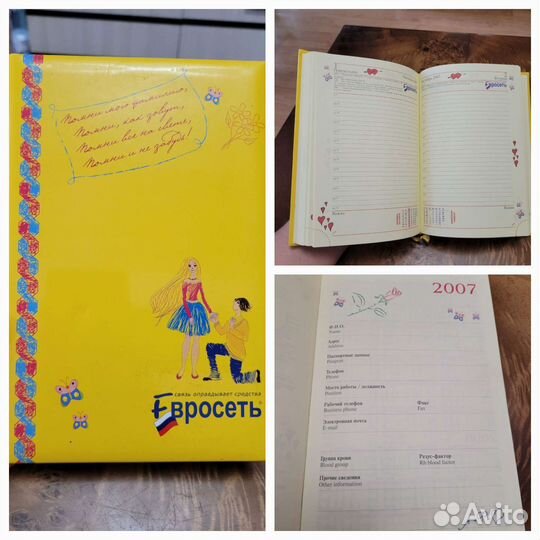 Помни мою фамилию,
Помни, как зовут,
Помни все на свете,
Помни и не забудь!
связь оправдывает средства
Евросеть
Евросеть
Евросеть
2007
Ф.И.О.
Name
Адрес
Address
Паспортные данные
Passport
Телефон
Phone
Место работы / должность
Position
Рабочий телефон Факс
Business phone Fax
Электронная почта
E-mail
Группа крови Резус-фактор
Blood group Rh blood factor
Прочие сведения
Other information
Avito